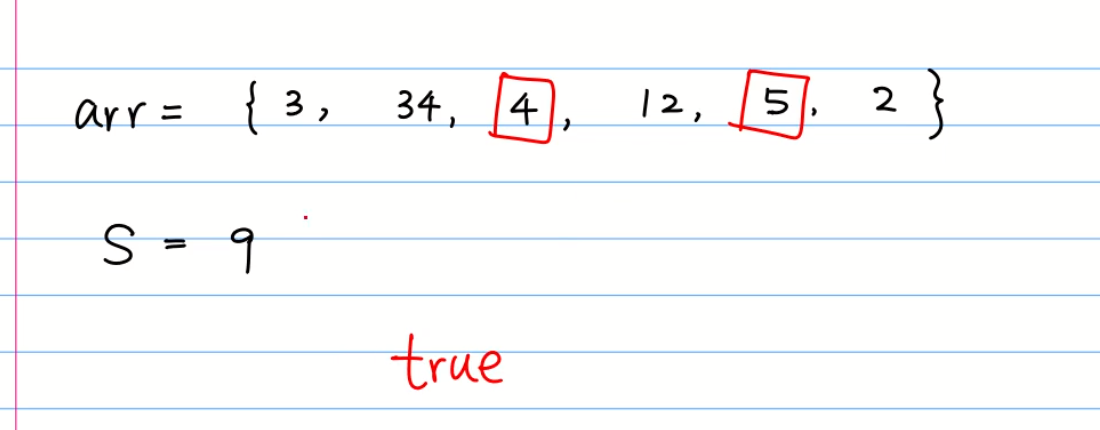 arr = { 3, 34, 4, 12, 5, 2 }
S = 9
true